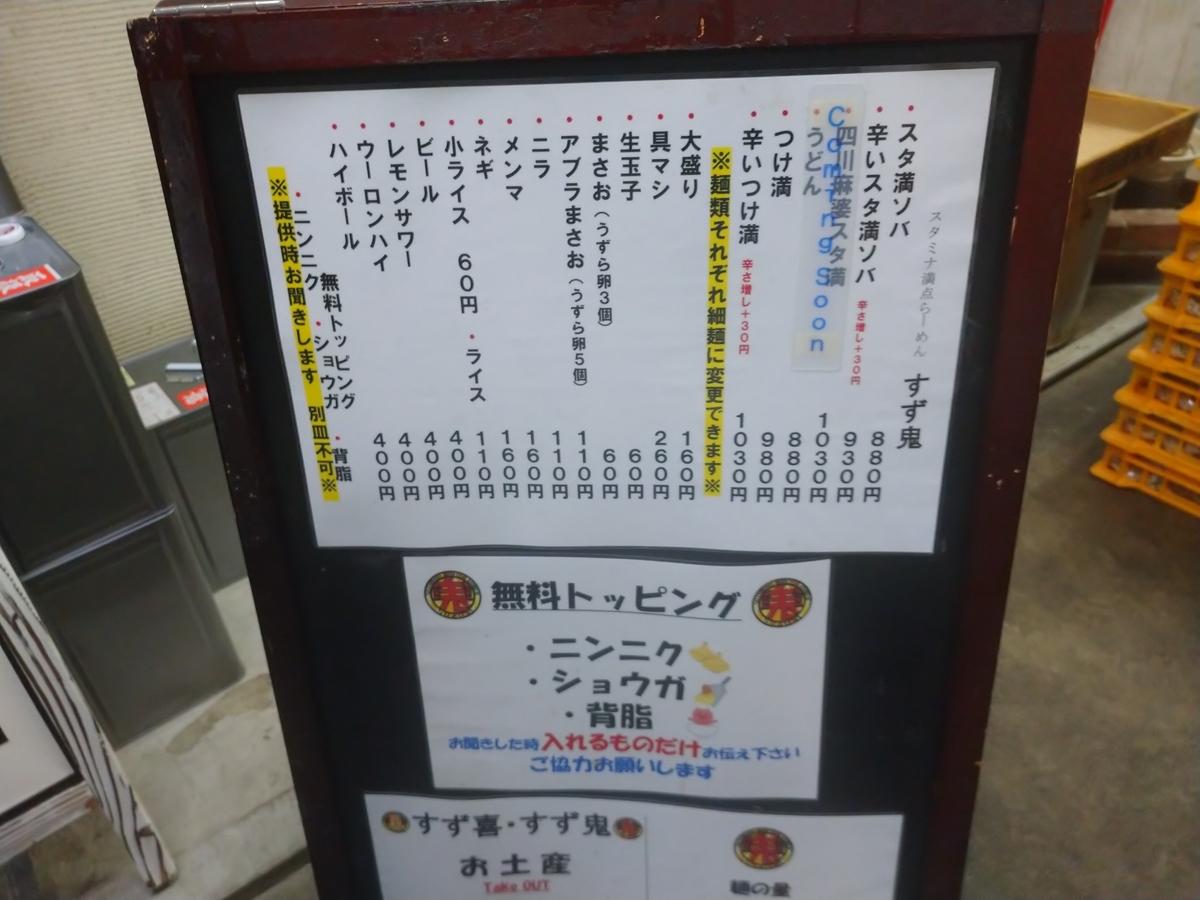 スタミナ満点らーめん すず鬼
・スタ満ソバ 880円
・辛いスタ満ソバ 辛さ増し+30円 930円
・四川麻婆スタ満 1030円
Coming Soon
・うどん 880円
・つけ満 980円
・辛いつけ満 辛さ増し+30円 1030円
※麺類それぞれ細麺に変更できます※
・大盛り 160円
・具マシ 260円
・生玉子 60円
・まさお(うずら卵3個) 60円
・アブラまさお(うずら卵5個) 110円
・ニラ 110円
・メンマ 160円
・ネギ 160円
・小ライス 60円 ・ライス 110円
・ビール 400円
・レモンサワー 400円
・ウーロンハイ 400円
・ハイボール 400円
無料トッピング
・ニンニク ・ショウガ ・背脂
※提供時お聞きします 別皿不可※
無料トッピング
・ニンニク
・ショウガ
・背脂
お聞きした時入れるものだけお伝え下さい
ご協力お願いします
すず喜・すず鬼
お土産
Take OUT
麺の量